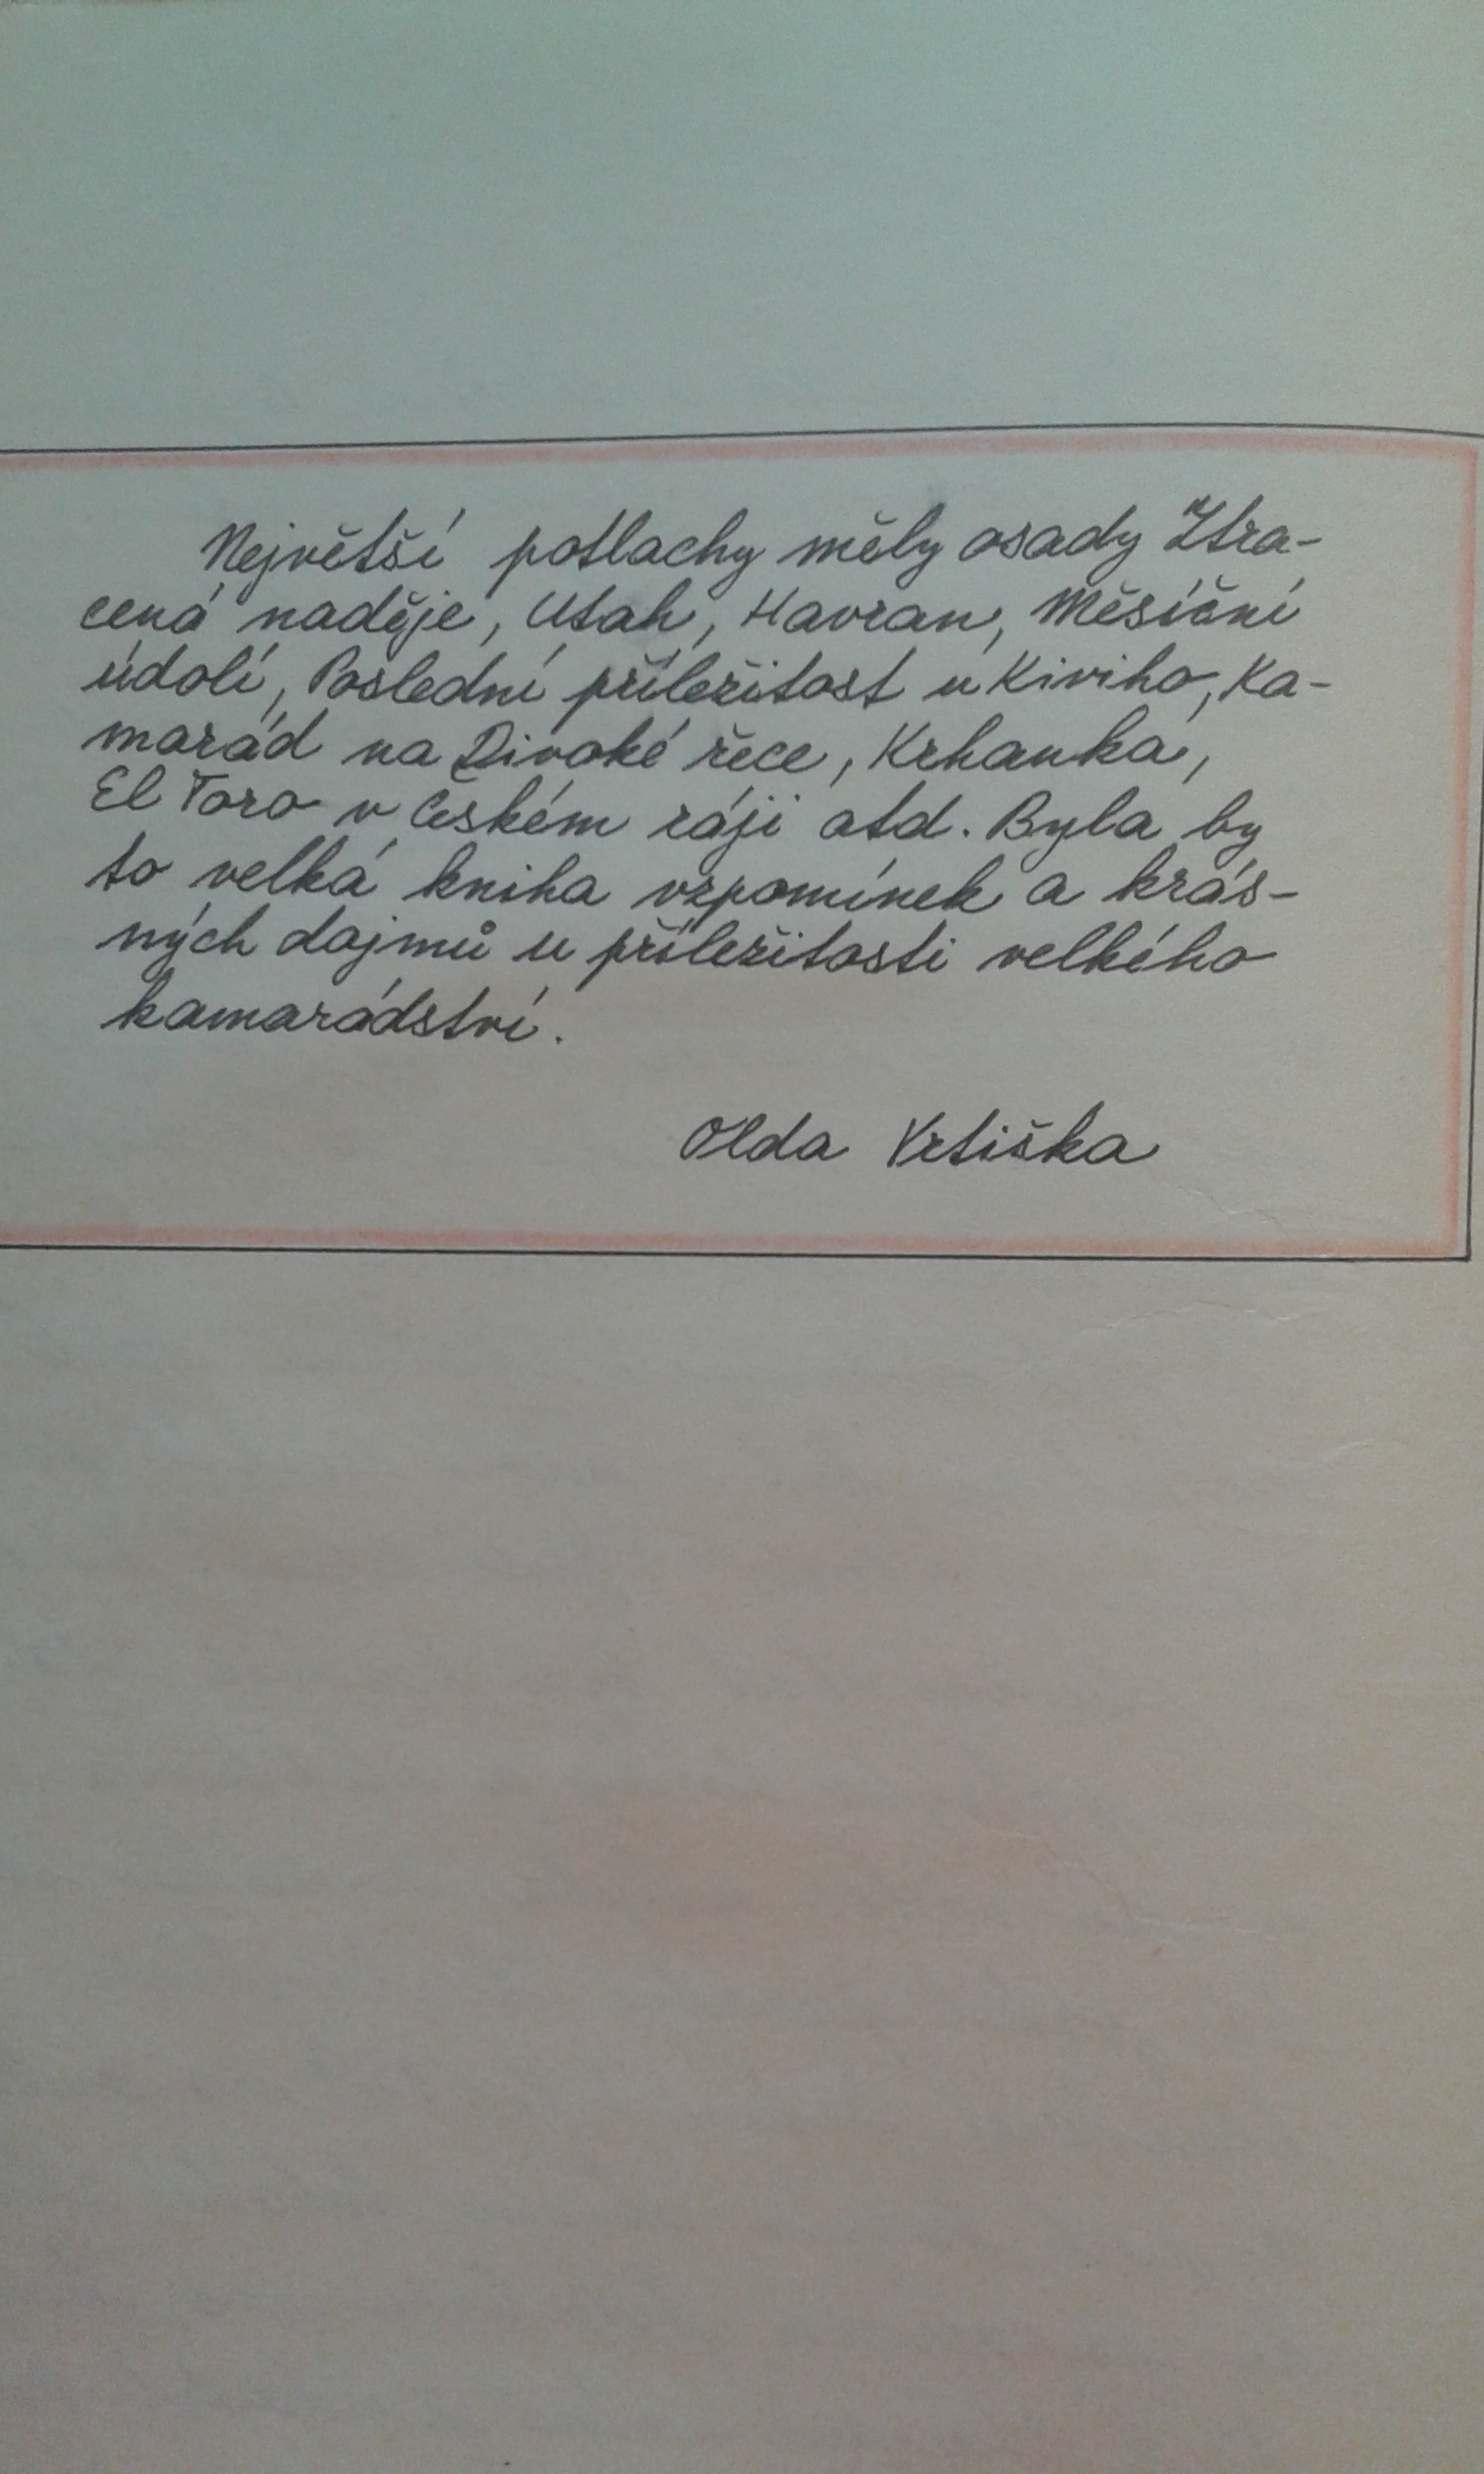 Největší potlachy měly osady Ztra-
cená naděje, Utah, Havran, Měsíční
údolí, Poslední příležitost u Kiviho, Ka-
marád na Divoké řece, Krhanka,
El Toro v Českém ráji atd. Byla by
to velká kniha vzpomínek a krás-
ných dojmů u příležitosti velkého
kamarádství.
Olda Vrtiška